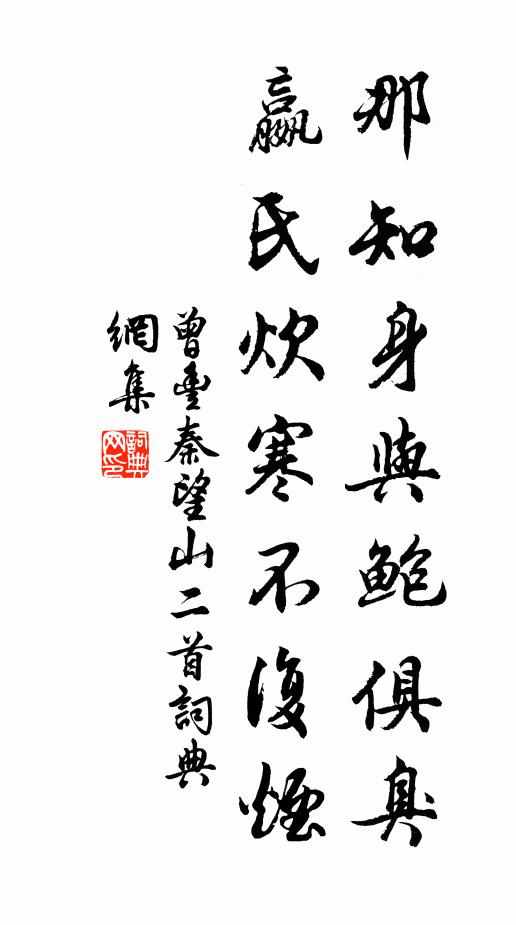 那知身與鮑俱臭
嬴氏炊寒不復煙
曾豐秦望山二首詞典
網集
詞典
網印